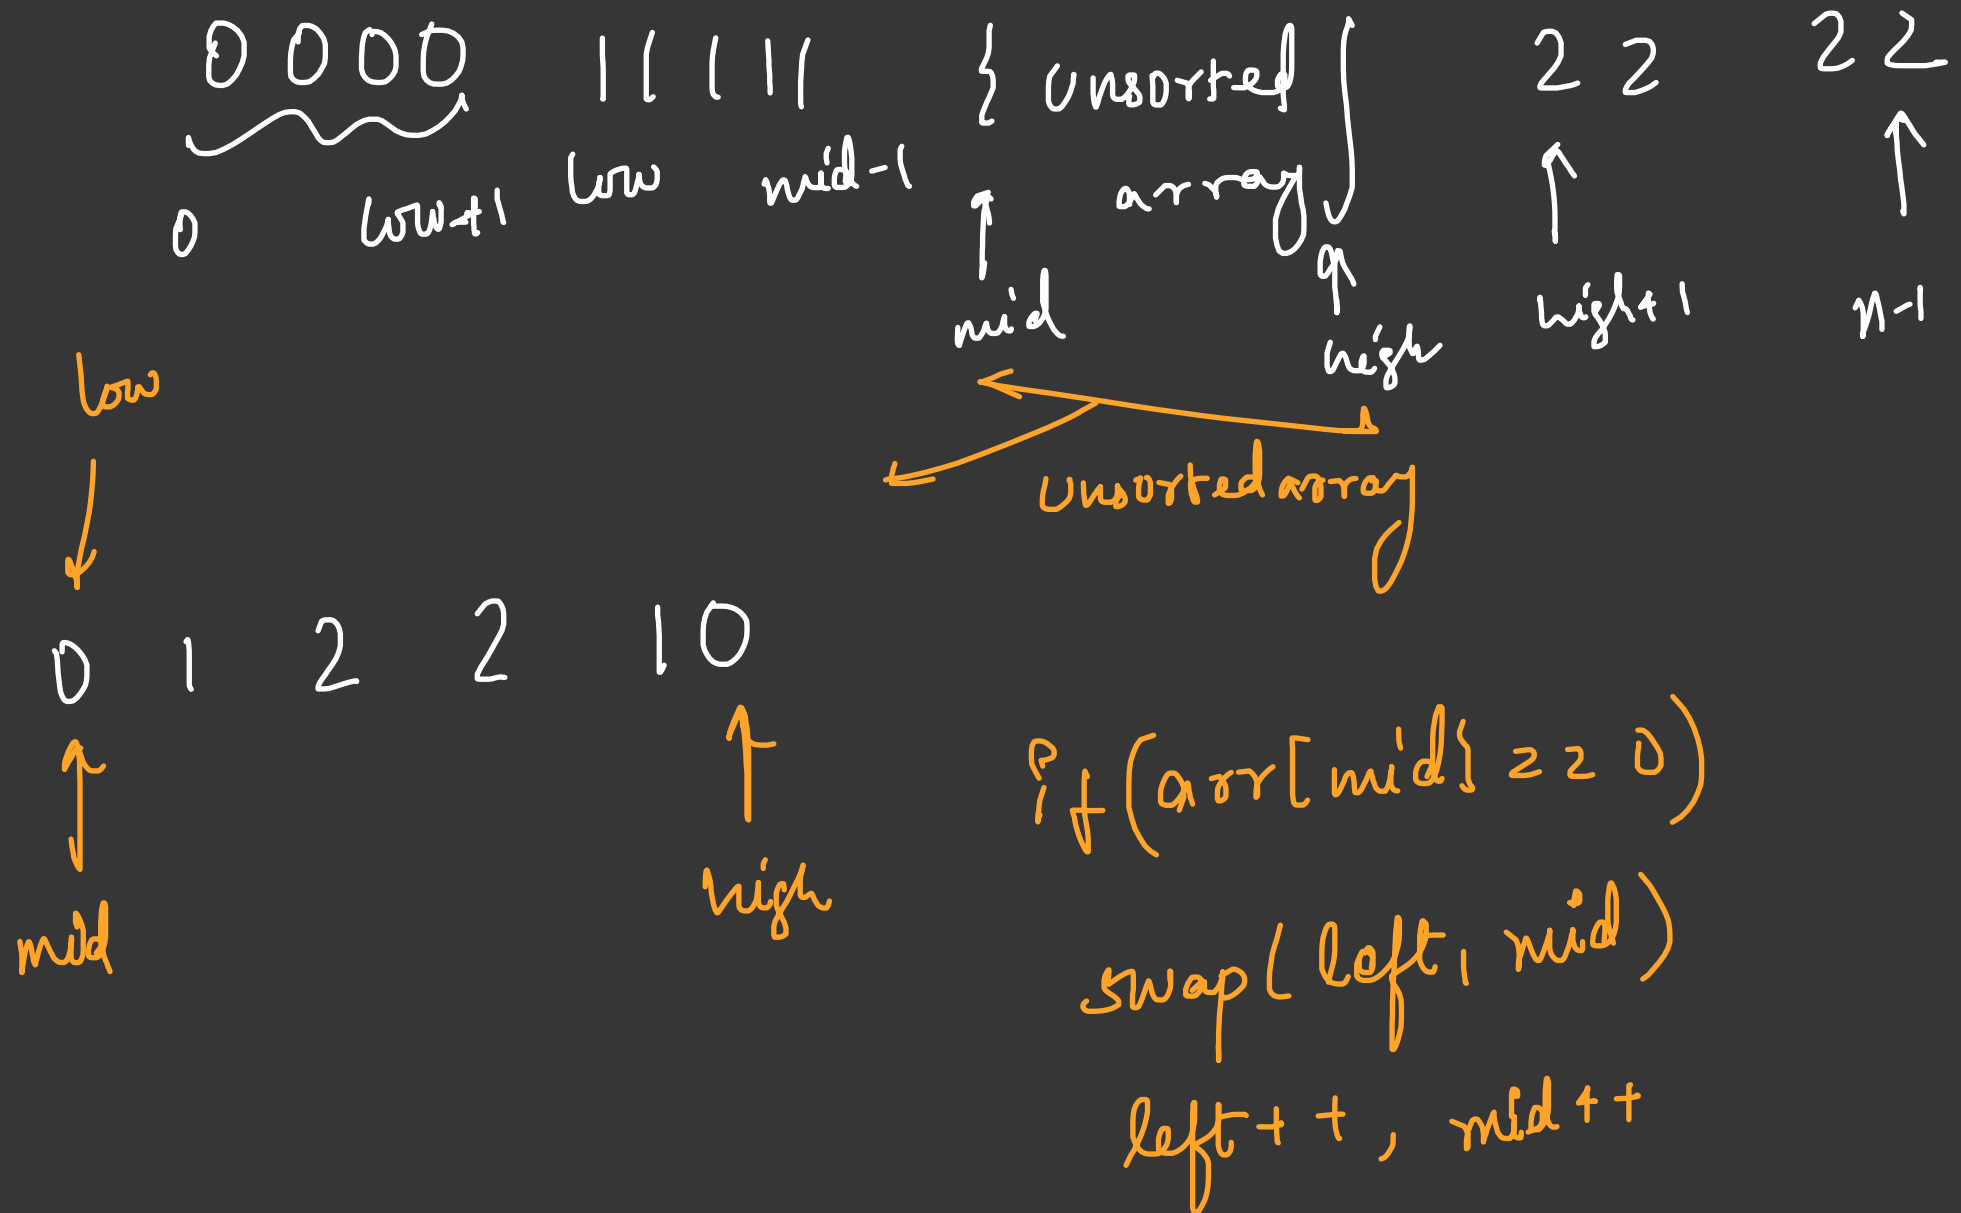 0 0 0 0 1 1 1 1 1 { unsorted } 2 2 2 2
array
0 low+1 low mid-1
mid high high+1 n-1
low
unsorted array
0 1 2 2 1 0
mid high
if (arr[mid] == 0)
swap(left, mid)
left++, mid++